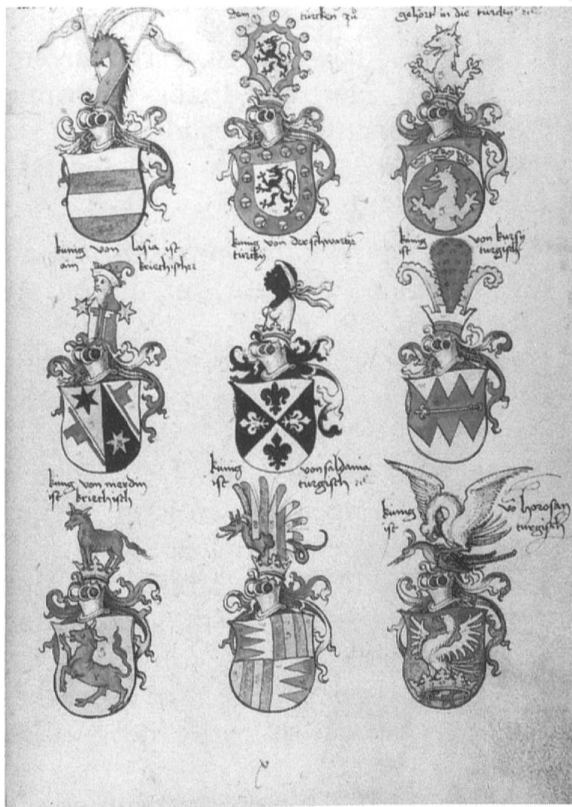 dem türcken zů
gehört in die türckey
künig von lusia ist
ain kriechischer
künig von der schwartzen
türcky
künig von kursy
ist turgisch
künig von merdin
ist kriechisch
künig von saldania
ist turgisch
künig vō horosan
ist turgisch